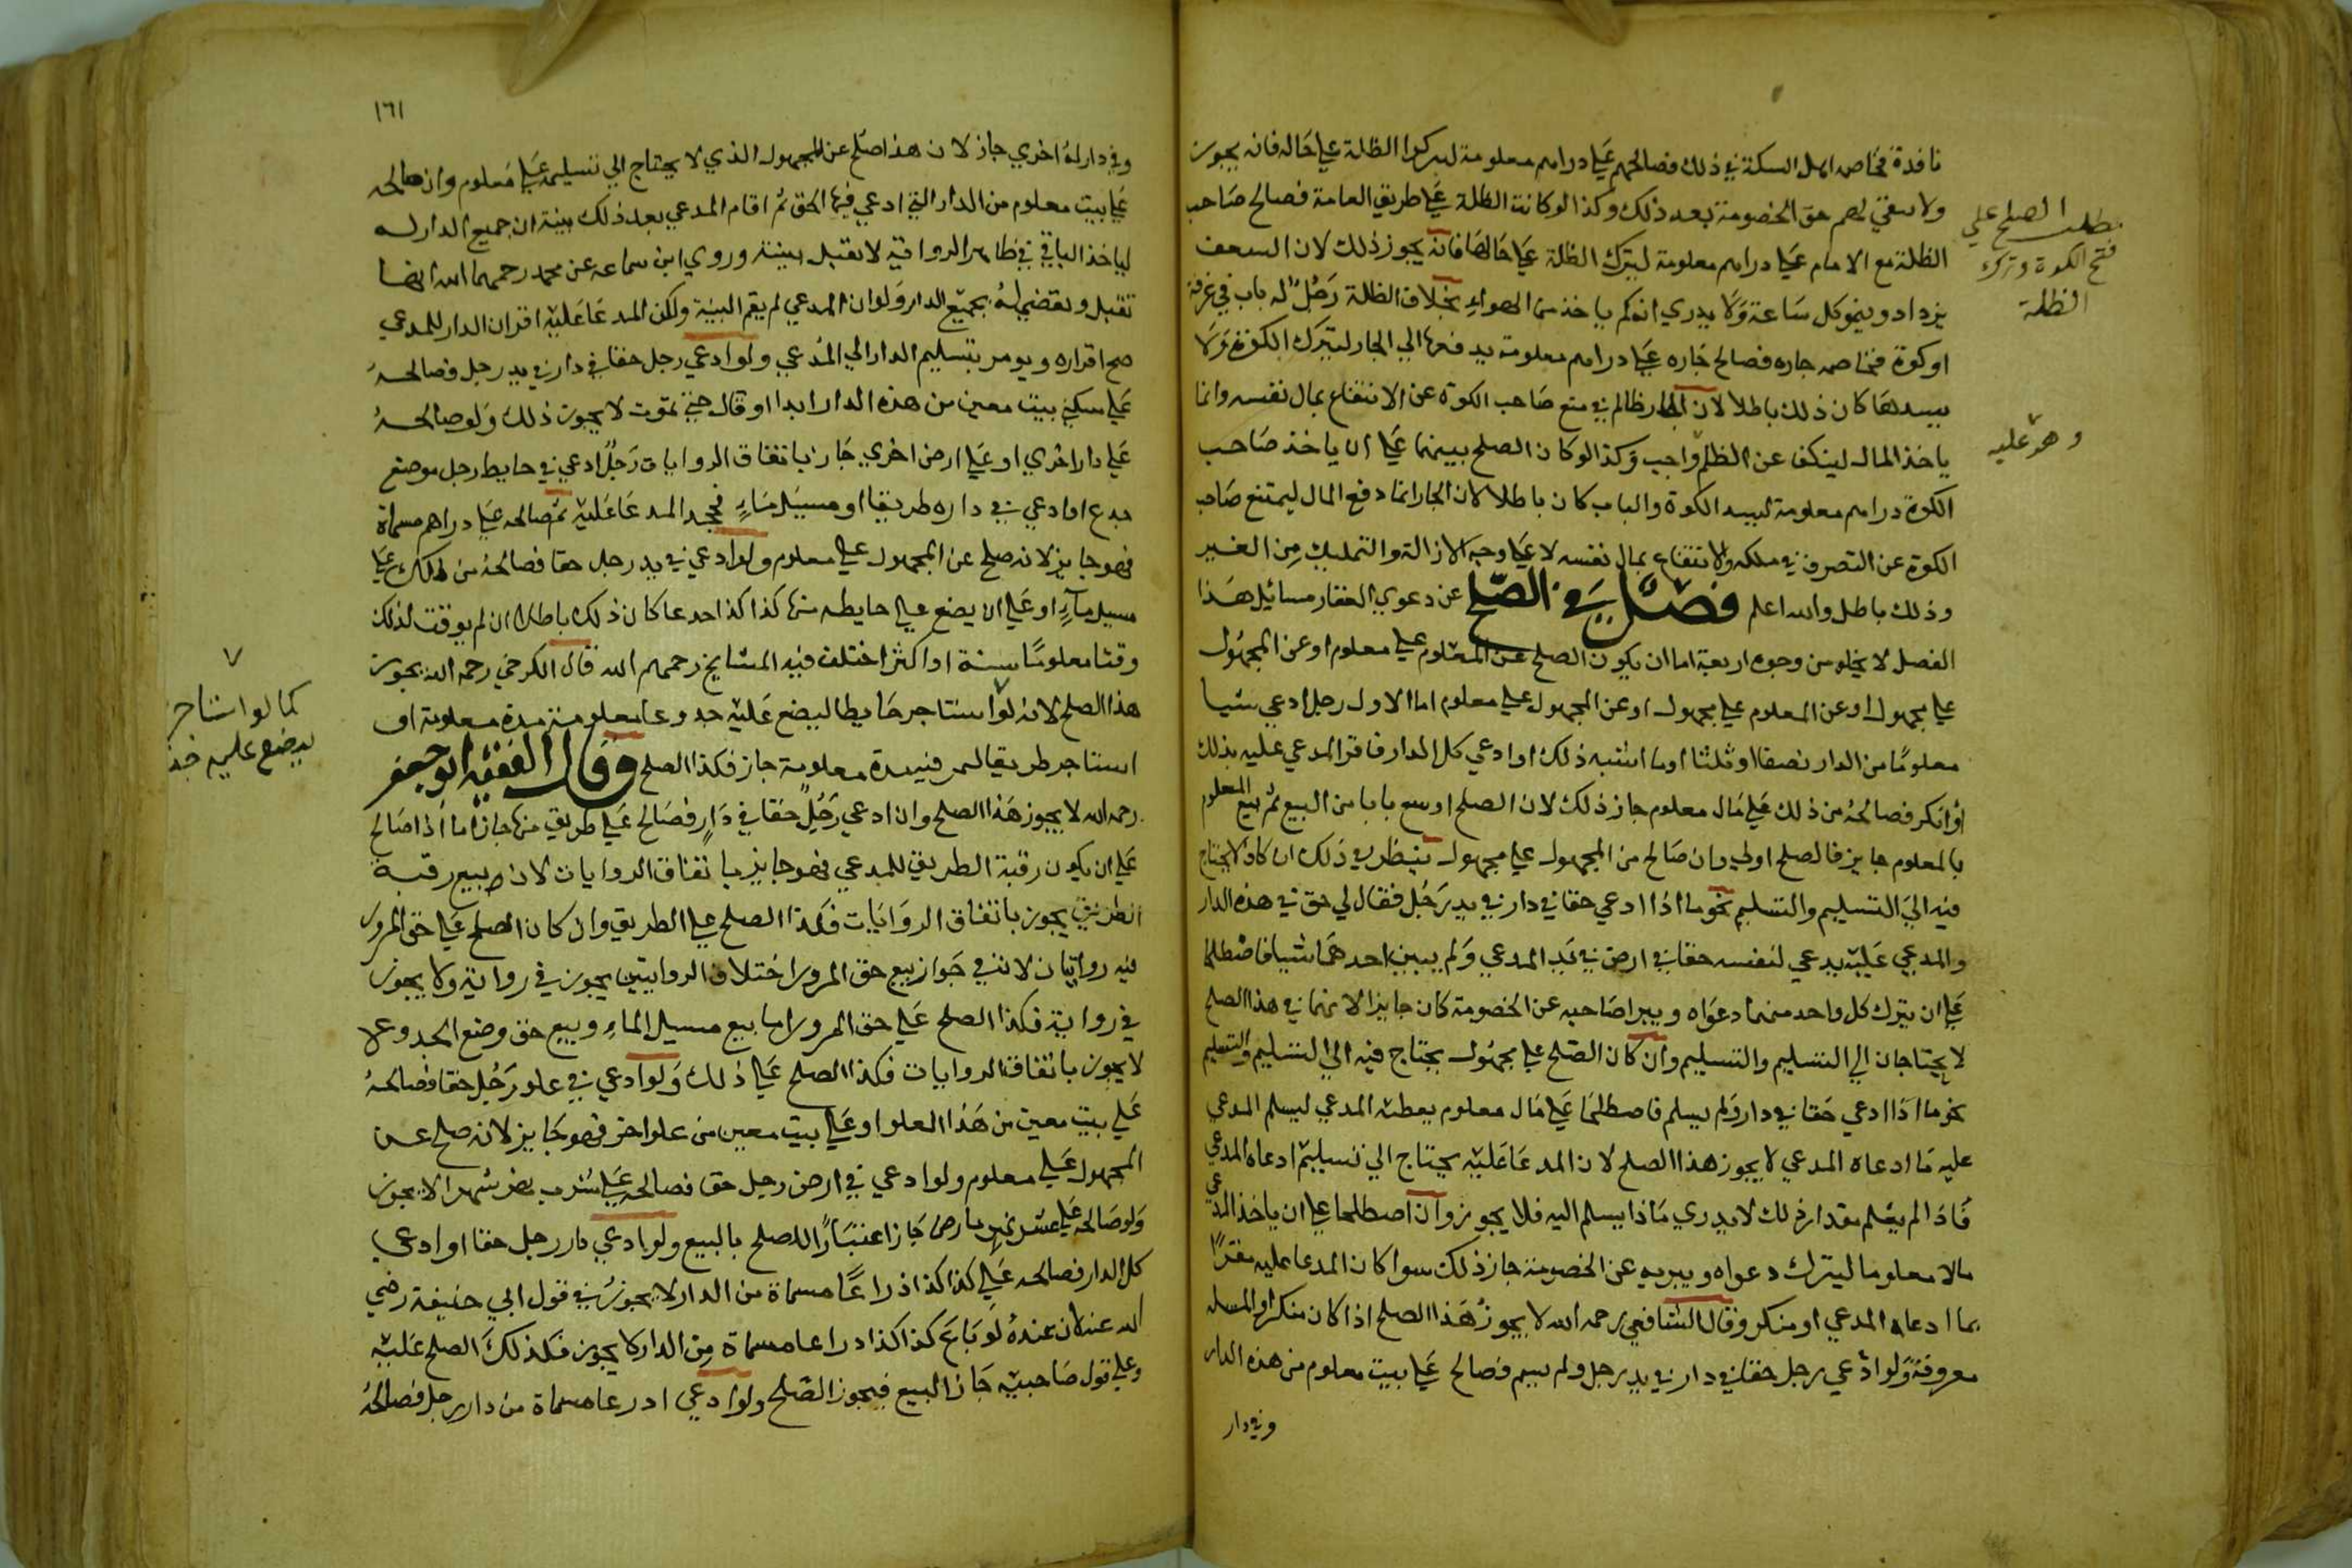 نافذة فخاصم اهل السكة في ذلك فصالحهم علي دراهم معلومة ليتركوا الظلة علي حاله فانه يجوز
ولا يبقي لهم حق الخصومة بعد ذلك وكذا لو كانت الظلة علي طريق العامة فصالح صاحب
الظلة مع الامام علي دراهم معلومة ليترك الظلة علي حالها فانه يجوز ذلك لان السعف
يزداد وينمو كل ساعة ولا يدري انه كم ياخذ من الهواء بخلاف الظلة رجل له باب في غرفة
او كوة فخاصمه جاره فصالح جاره علي دراهم معلومة يدفعها الي الجار ليترك الكوة ولا
يسدها كان ذلك باطلا لان الجار ظالم في منع صاحب الكوة عن الانتفاع بمال نفسه وانما
ياخذ المال لينكف عن الظلم واجب وكذا لو كان الصلح بينهما علي ان ياخذ صاحب
الكوة دراهم معلومة ليسد الكوة والباب كان باطلا لان الجار انما دفع المال ليمتنع صاحب
الكوة عن التصرف في ملكه والانتفاع بمال نفسه لا علي وجه الازالة والتمليك من الغير
وذلك باطل والله اعلم فصل في الصلح عن دعوي العقار مسائل هذا
الفصل لا يخلو من وجوه اربعة اما ان يكون الصلح عن المعلوم علي معلوم او عن المجهول
علي مجهول او عن المعلوم علي مجهول او عن المجهول علي معلوم اما الاول رجل ادعي شيا
معلوما من الدار نصفا او ثلثا او ما اشبه ذلك او ادعي كل الدار فاقر المدعي عليه بذلك
او انكر فصالحه من ذلك علي مال معلوم جاز ذلك لان الصلح اوسع بابا من البيع ثم بيع المعلوم
بالمعلوم جايز فالصلح اولي وان صالح من المجهول علي مجهول ينظر في ذلك ان كان لا يحتاج
فيه الي التسليم والتسلم نحو ما اذا ادعي حقا في دار في يد رجل فقال لي حق في هذه الدار
والمدعي عليه يدعي لنفسه حقا في ارض في يد المدعي ولم يبين احدهما شيا فاصطلحا
علي ان يترك كل واحد منهما دعواه ويبرا صاحبه عن الخصومة كان جايزا لانهما في هذا الصلح
لا يحتاجان الي التسليم والتسليم وان كان الصلح علي مجهول يحتاج فيه الي التسليم والتسليم
نحو ما اذا ادعي حقا في دار ولم يسلم فاصطلحا علي مال معلوم يعطيه المدعي ليسلم المدعي
عليه ما ادعاه المدعي لا يجوز هذا الصلح لان المدعا عليه يحتاج الي تسليم ما ادعاه المدعي
فاذا لم يعلم مقدار ذلك لا يدري ماذا يسلم اليه فلا يجوز وان اصطلحا علي ان ياخذ المدعي
مالا معلوما ليترك دعواه ويبريه عن الخصومة جاز ذلك سوا كان المدعا عليه مقرا
بما ادعاه المدعي او منكر وقال الشافعي رحمه الله لا يجوز هذا الصلح اذا كان منكرا والمسله
معروفة ولو ادعي رجل حقا في دار في يد رجل ولم يسم فصالح علي بيت معلوم من هذه الدار
وفي دار
مطلب الصلح علي
فتح الكوة وترك
الظلة
وهو عليه
١٦١
وفي دار له اخري جاز لان هذا صلح عن المجهول الذي لا يحتاج الي تسليمه علي معلوم وان صالحه
علي بيت معلوم من الدار التي ادعي فيها الحق ثم اقام المدعي بعد ذلك بينة ان جميع الدار له
لياخذ الباقي في ظاهر الرواية لا تقبل بينته وروي ابن سماعه عن محمد رحمهما الله انها
تقبل ويقضي له بجميع الدار ولو ان المدعي لم يقم البينة ولكن المدعا عليه اقر ان الدار للمدعي
صح اقراره ويومر بتسليم الدار الي المدعي ولو ادعي رجل حقا في دار في يد رجل فصالحه
علي سكني بيت معين من هذه الدار ابدا او قال حتي يموت لا يجوز ذلك ولو صالحه
علي دار اخري او علي ارض اخري جاز باتفاق الروايات رجل ادعي في حايط رجل موضع
جذع او ادعي في داره طريقا او مسيل ماء فجحد المدعا عليه ثم صالحه علي دراهم مسماة
فهو جايز لانه صلح عن المجهول علي معلوم ولو ادعي في يد رجل حقا فصالحه من ذلك علي
مسيل ماء او علي ان يضع علي حايطه منها كذا كذا جدعا كان ذلك باطلا ان لم يوقت لذلك
وقتا معلوما سنة او اكثر اختلف فيه المشايخ رحمهم الله قال الكرخي رحمه الله يجوز
هذا الصلح لانه لو استاجر حايطا ليضع عليه جدوعا معلومة مدة معلومة او
استاجر طريقا ليمر فيه مدة معلومة جاز فكذا الصلح وقال الفقيه ابو جعفر
رحمه الله لا يجوز هذا الصلح وان ادعي رجل حقا في دار فصالح علي طريق منها جاز اما اذا صالح
علي ان يكون رقبة الطريق للمدعي فهو جايز باتفاق الروايات لان بيع رقبة
الطريق يجوز باتفاق الروايات فكذا الصلح علي الطريق وان كان الصلح علي حق المرور
فيه روايتان لان في جواز بيع حق المرور اختلاف الروايتين يجوز في رواية ولا يجوز
في رواية فكذا الصلح علي حق المرور اما بيع مسيل الماء وبيع حق وضع الجدوع لا
لا يجوز باتفاق الروايات فكذا الصلح علي ذلك ولو ادعي في علو رجل حقا فصالحه
علي بيت معين من هذا العلو او علي بيت معين من علو اخر فهو جايز لانه صلح عن
المجهول علي معلوم ولو ادعي في ارض رجل حق فصالحه علي شرب نهر شهرا لا يجوز
ولو صالحه علي عشر نهر بارض جاز اعتبارا للصلح بالبيع ولو ادعي دار رجل حقا او ادعي
كل الدار فصالحه علي كذا كذا ذراعا مسماة من الدار لا يجوز في قول ابي حنيفة رضي
الله عنه لان عنده لو باع كذا كذا ذراعا مسماة من الدار لا يجوز فكذلك الصلح عليه
وعلي قول صاحبيه جاز البيع فيجوز الصلح ولو ادعي اذرعا مسماة من دار رجل فصالحه
كما لو استاجر
ليضع عليه